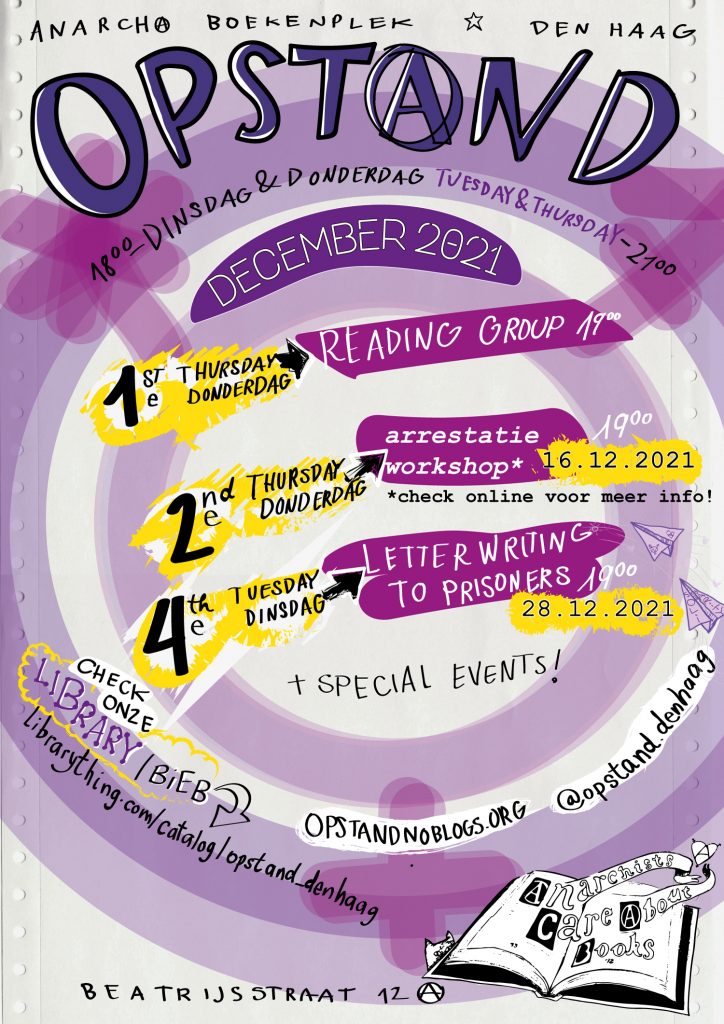 ANARCHA BOEKENPLEK ☆ DEN HAAG
OPSTAND
18⁰⁰ – DINSDAG & DONDERDAG TUESDAY & THURSDAY – 21⁰⁰
DECEMBER 2021
1ST e THURSDAY DONDERDAG
READING GROUP 19⁰⁰
2nd e THURSDAY DONDERDAG
arrestatie workshop* 19⁰⁰
16.12.2021
*check online voor meer info!
4th e TUESDAY DINSDAG
LETTER WRITING
TO PRISONERS 19⁰⁰
28.12.2021
+ SPECIAL EVENTS!
CHECK
ONZE
LIBRARY/BiEB
librarything.com/catalog/opstand_denhaag
OPSTANDNOBLOGS.ORG
@opstand.denhaag
Anarchists
Care About
Books
13 12
BEATRIJSSTRAAT 12 Ⓐ